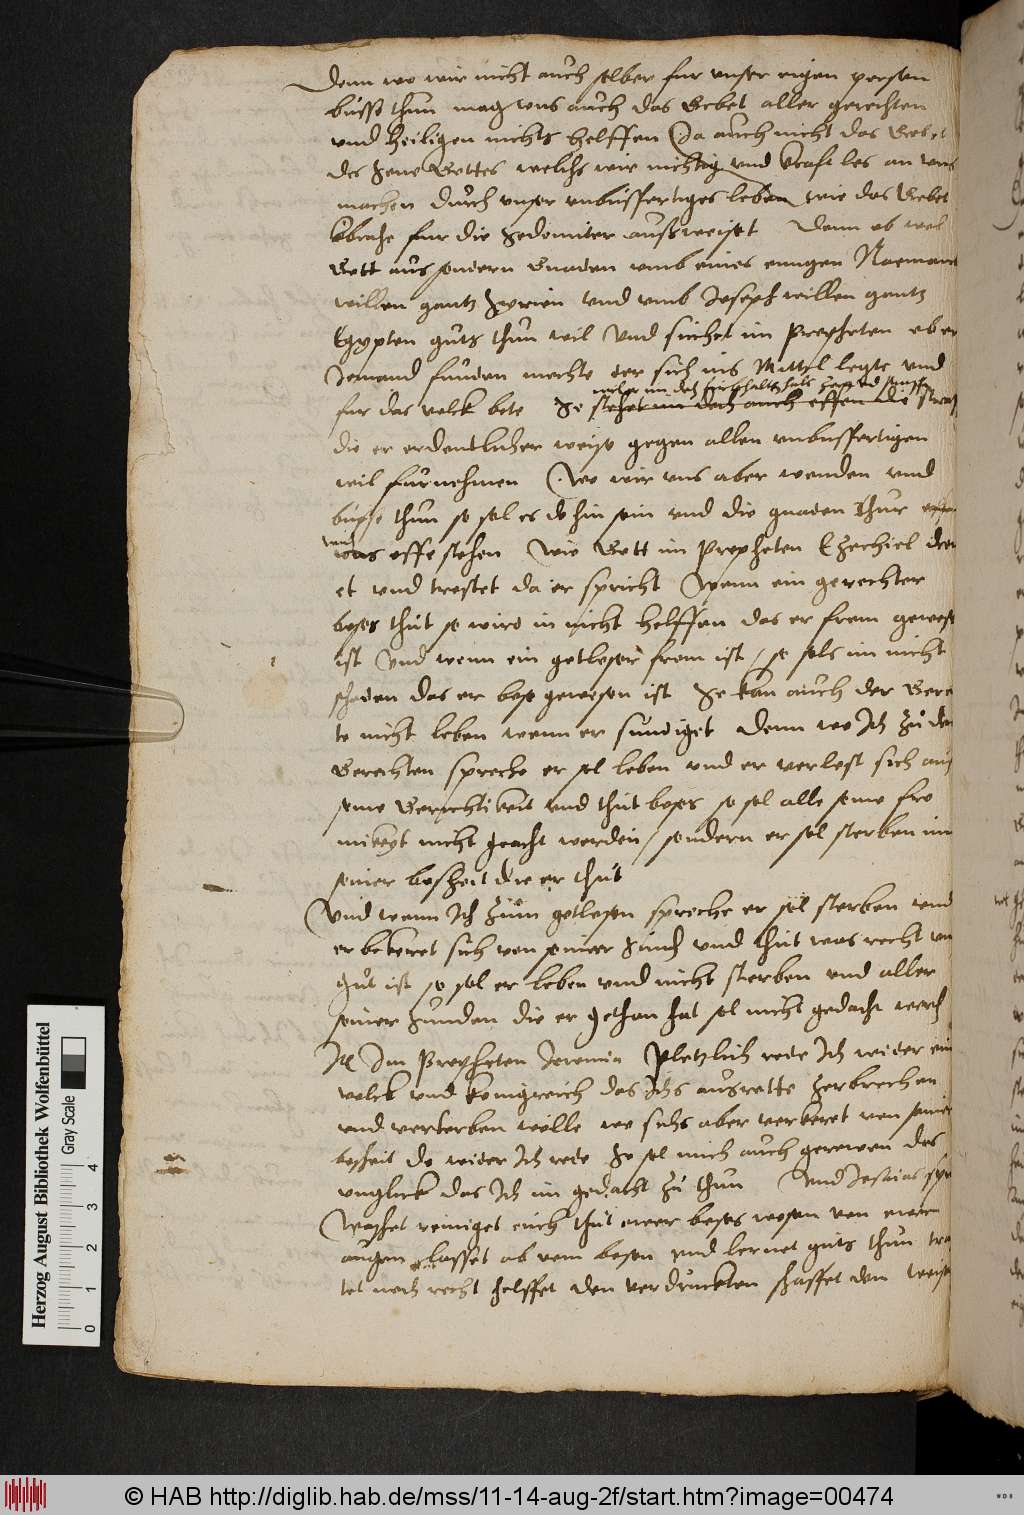 Denn wo wir nicht auch selber fur unser eigen person
busse thun mag uns auch das Gebet aller gerechten
und heiligen nichts helffen Ja auch nicht das Gebet
des sons Gottes welchs wir nichtig und krafftlos an uns
machen durch unser unbusfertiges leben wie das Gebet
Abrahe fur die Sodomiter ausweiset Denn ob wol
Gott aus sondern Gnaden umb eines einigen Naemans
willen gantz Syrien und umb Joseph willen gantz
Egypten guts thun wil Und suchet im Propheten ob er
Jemand funden mochte der sich ins Mittel legte und
fur das volck bete So stehet im doch auch offen die straffe
die er ordentlicher weise gegen allen unbusfertigen
wil furnehmen Wo wir uns aber wenden und
busse thun so sol es do hin sein und die gnaden Thur
uns offe stehen Wie Gott im Propheten Ezechiel drew
et und trostet da er spricht Wenn ein gerechter
boses thut so wird in nicht helffen das er from gewest
ist Und wenn ein gotloser from ist / so sols im nicht
schaden das er bose gewesen ist So kan auch der Gerech
te nicht leben wenn er sundiget Denn wo Ich zu dem
Gerechten spreche er sol leben und er verlest sich auf
seine Gerechtikeit und thut boses so sol alle seine fro
mikeyt nicht geacht werden / sondern er sol sterben inn
seiner bosheit die er thut
Und wenn Ich zum gotlosen spreche er sol sterben und
er bekeret sich von seiner Sund und thut was recht und
gut ist so sol er leben und nicht sterben und aller
seiner Sunden die er gethan hat sol nicht gedacht werden
Im Propheten Jeremia Pletzlich rede Ich wider ein
volck und konigreich das Ichs ausrotte zerbrechen
und verterben wolle wo sichs aber bekeret von seiner
bosheit do wider Ich rede So sol mich auch gerewen das
ungluck das Ich im gedacht zu thun Und Jesaias spricht
Waschet reiniget euch thut ewer boses wesen von ewern
augen lasset ab vom bosen und lernet guts thun trach
tet noch recht helffet den verdruckten schaffet den weisen
Herzog August Bibliothek Wolfenbüttel
Gray Scale
0 1 2 3 4
© HAB http://diglib.hab.de/mss/11-14-aug-2f/start.htm?image=00474